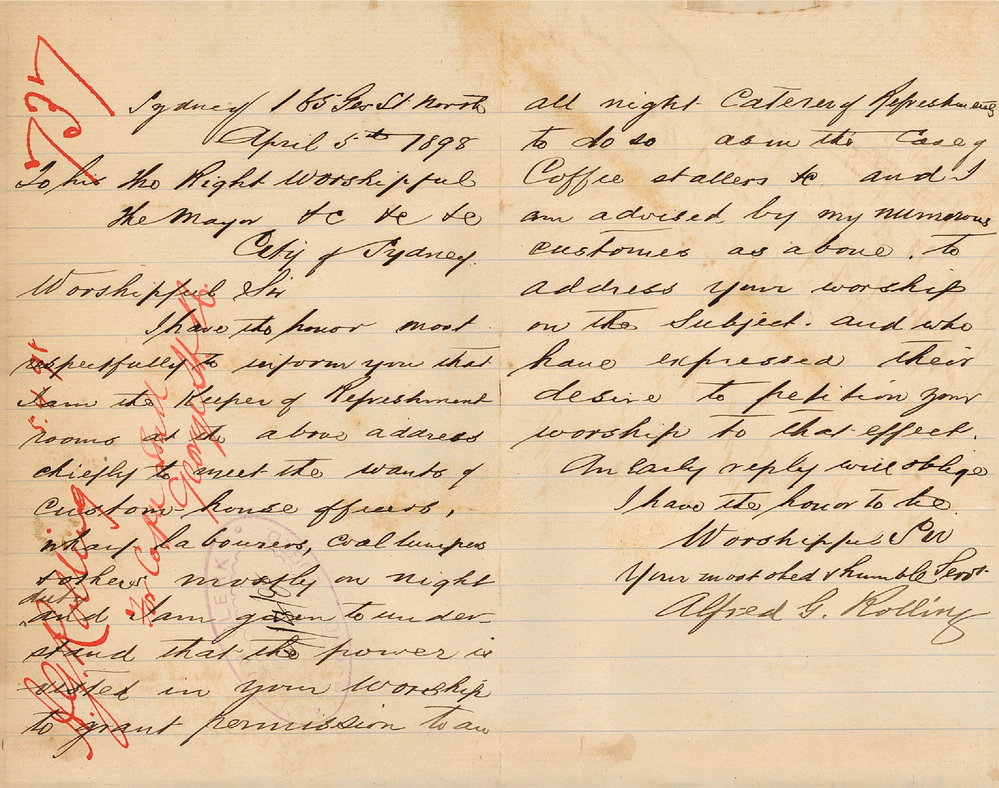 Sydney 165 Geo St North
April 5th 1898
To his the Right Worshipful
the Mayor &c &c &c
City of Sydney.
Worshipful Sir
I have the honor most
respectfully to inform you that
I am the Keeper of Refreshment
rooms at the above address
chiefly to meet the wants of
Custom-house officers,
wharf labourers, coal lumpers
& others mostly on night
duty
and I am given to under-
stand that the power is
vested in your Worship
to grant permission to an
all night Caterer of Refreshments
to do so as in the Case of
Coffee stallers &c. and I
am advised by my numerous
customes as above. to
address your worship
on the subject. and who
have expressed their
desire to petition your
worship to that effect.
An early reply will oblige
I have the honor to be
Worshipful Sir
Your most obed & humble Servt
Alfred G. Rolling
A G Rolling
For Coffee Stall
George St
5.4.98